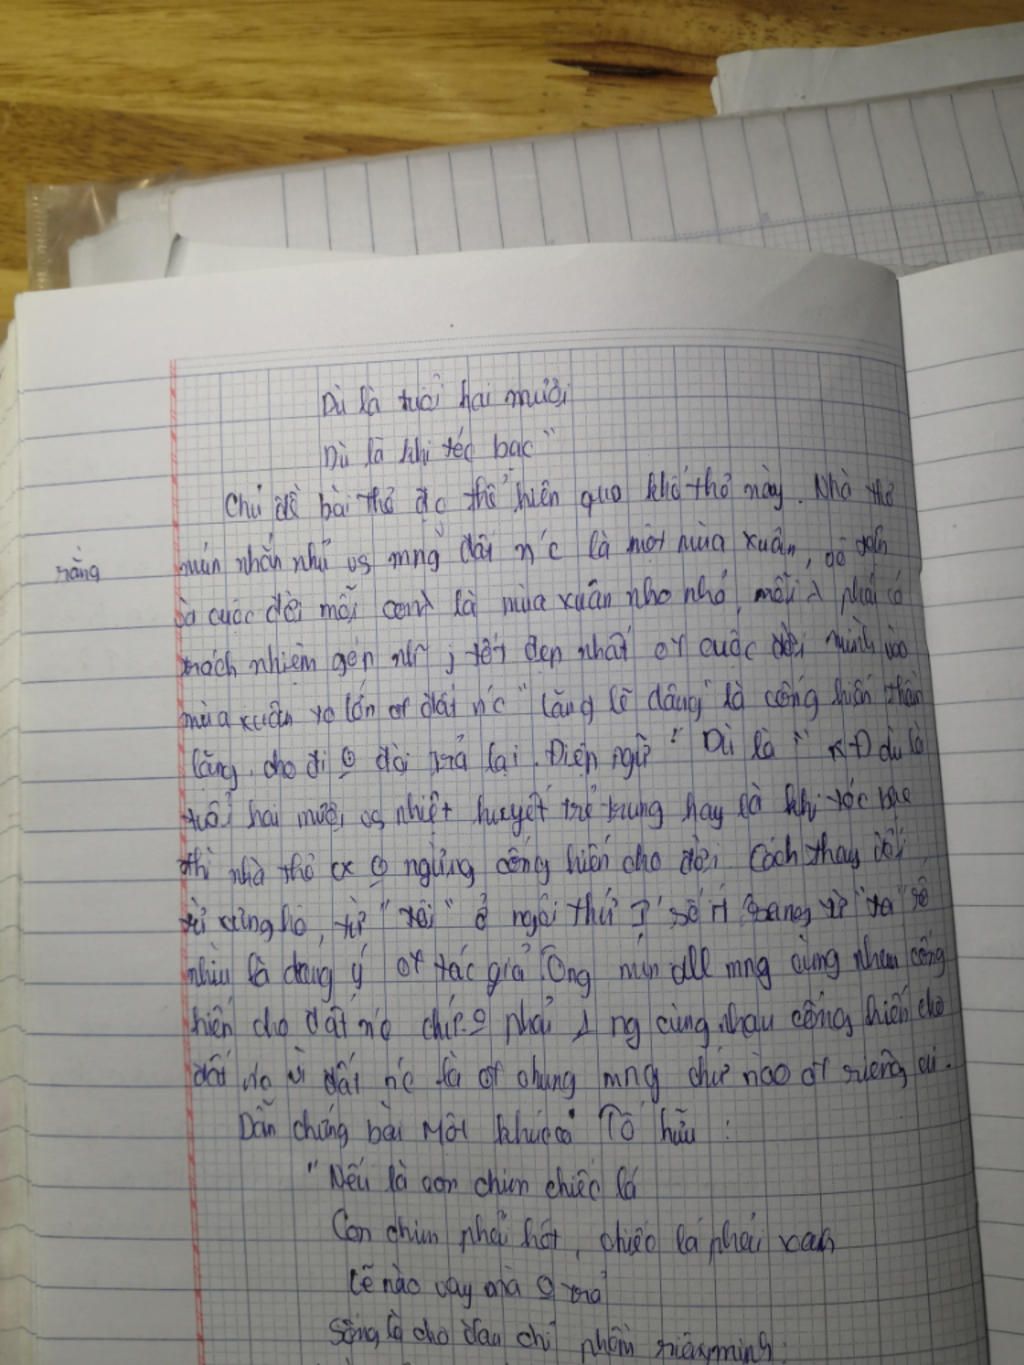 Dù là tuổi hai mươi
Dù là khi tóc bạc"
Chủ đề bài thơ đc thể hiện qua khổ thơ này. Nhà thơ
muốn nhắn nhủ vs mng đất n'c là một mùa xuân,
rằng
cuộc đời mỗi con là mùa xuân nho nhỏ, mỗi phải có
trách nhiệm góp tốt đẹp nhất of cuộc đời mình vào
mùa xuân to lớn of đất n'c "lặng lẽ dâng" là cống hiến thầm
lặng, cho đi đòi trả lại. Điệp ngữ "Dù là" dù là
tuổi hai mươi vs nhiệt huyết trẻ trung hay là khi tóc bạc
thì nhà thơ cx ngừng cống hiến cho đời. Cách thay đổi
từ xưng hô, từ "tôi" ở ngôi thứ I số ít sang từ "ta" số
nhìu là dụng ý of tác giả. Ông mún all mng cùng nhau cống
hiến cho đất n'c chứ phải 1 ng cùng nhau cống hiến cho
đất n'c vì đất n'c là of chung mng chứ nào of riêng ai.
Dẫn chứng bài Một khúc ca Tố hữu :
"Nếu là con chim chiếc lá
Con chim phải hót, chiếc lá phải xanh
Lẽ nào vay mà trả
Sống là cho đâu chỉ nhận